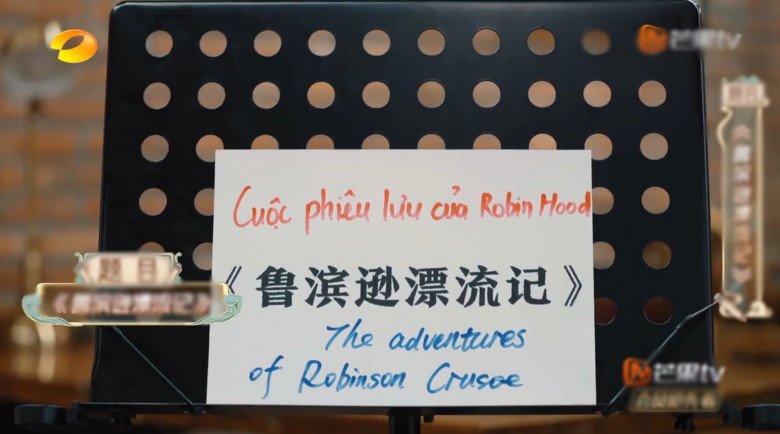 Cuộc phiêu lưu của Robin Hood
《鲁滨逊漂流记》
The adventures
of Robinson Crusoe
题目
《鲁滨逊漂流记》
芒果tv
芒果tv